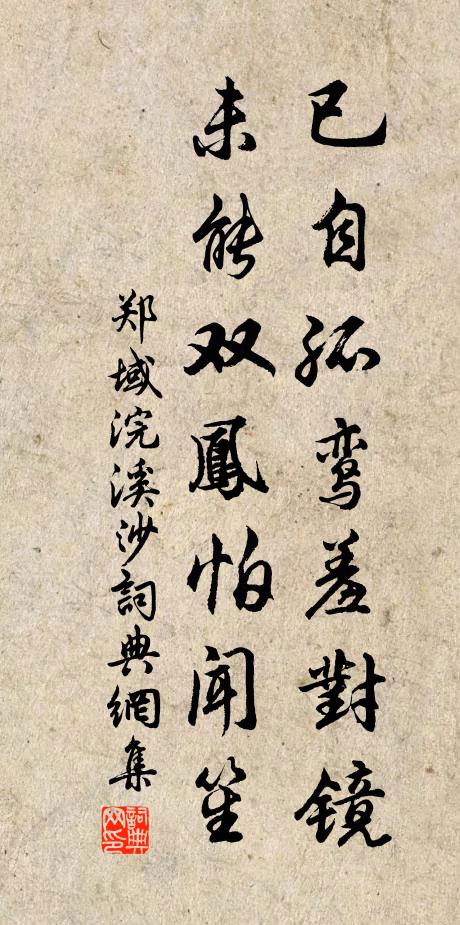 已自孤鸾羞對镜
未能双鳳怕闻笙
郑域浣溪沙詞典網集
詞典网印